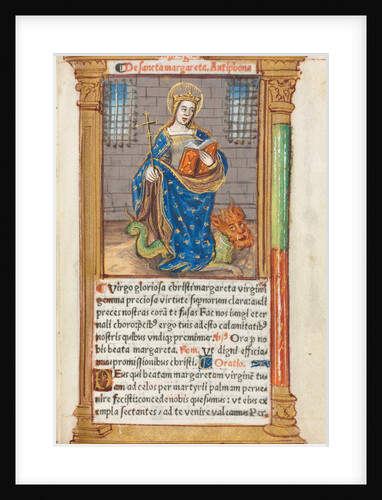 De sancta margareta. Antiphona
Virgo gloriosa christi margareta virginū
gemma preciosa virtute supnorum clara: audi
preces nostras corā te fusas Fac nos iungi eter
nali choro: pcib⁹ ergo tuis adesto calamitatib⁹
nostris quibus undiqȝ premimur. Ora p no
bis beata margareta. Ut digni efficia
mur promissionibus christi. Oratio.
Deus qui beatam margaretam virginē tu
am ad celos per martyrii palmam perue
nire fecisti: concede nobis quesumus: ut eius ex
empla sectantes, ad te venire valeamus Per.